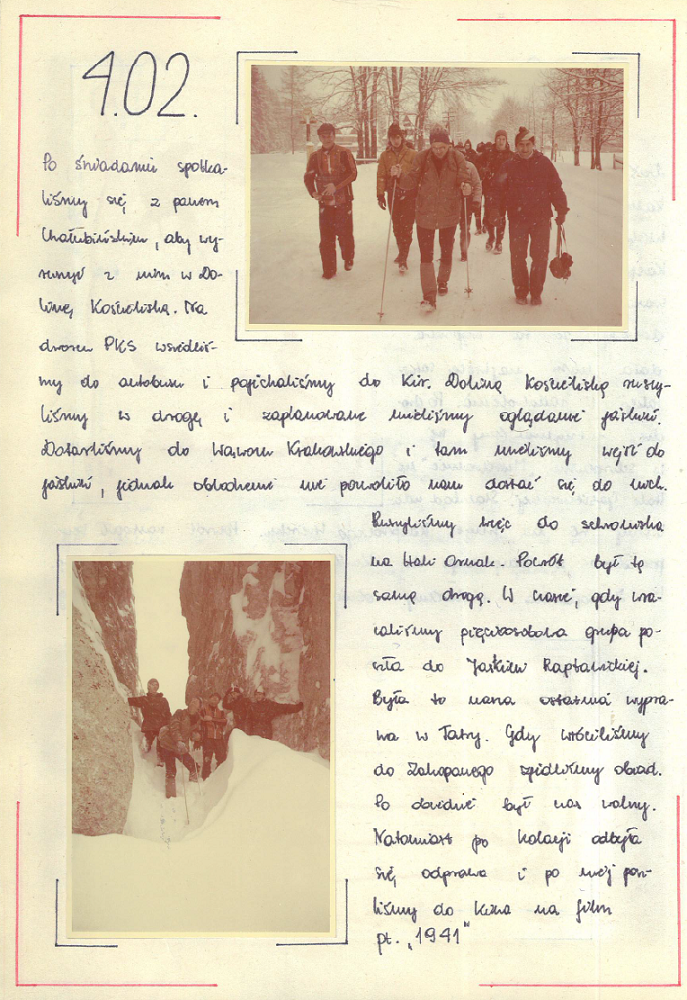 4.02.
Po śniadaniu spotka-
liśmy się z panem
Chałubińskim, aby wy-
ruszyć z nim w Do-
linę Kościeliską. Na
dworcu PKS wsiedliś-
my do autobusu i pojechaliśmy do Kir. Doliną Kościeliską ruszy-
liśmy w drogę i zaplanowane mieliśmy oglądanie jaskiń.
Dotarliśmy do Wąwozu Krakowskiego i tam mieliśmy wejść do
jaskiń, jednak oblodzenie nie pozwoliło nam dostać się do nich.
Ruszyliśmy więc do schroniska
na Hali Ornak. Powrót był tą
samą drogą. W czasie, gdy wra-
caliśmy pięcioosobowa grupa po-
szła do Jaskini Raptawickiej.
Była to nasza ostatnia wypra-
wa w Tatry. Gdy wróciliśmy
do Zakopanego zjedliśmy obiad.
Po obiedzie był czas wolny.
Natomiast po kolacji odbyła
się odprawa i po niej posz-
liśmy do kina na film
pt. „1941"